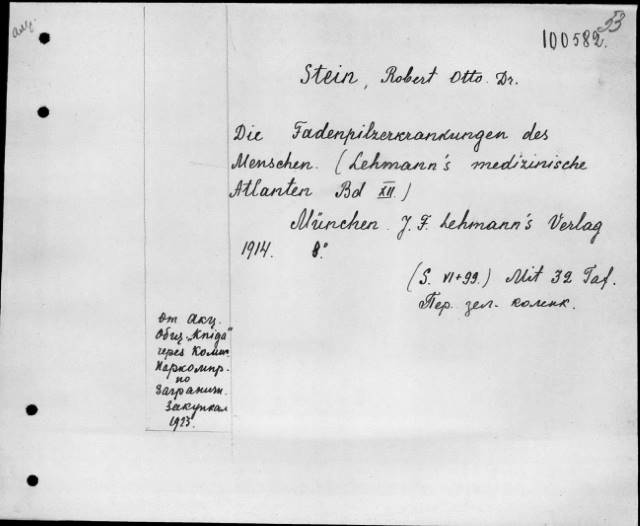 акц.
33
100582.
Stein, Robert Otto. Dr.
Die Fadenpilzerkrankungen des
Menschen. (Lehmann's medizinische
Atlanten Bd XII.)
München. J. F. Lehmann's Verlag
1914. 8°
(S. VI+99.) Mit 32 Taf.
Пер. зел. коленк.
От Акц.
Общ. „Kniga"
через Комис.
Наркомпр.
по
Загранич.
Закупкам
1923.